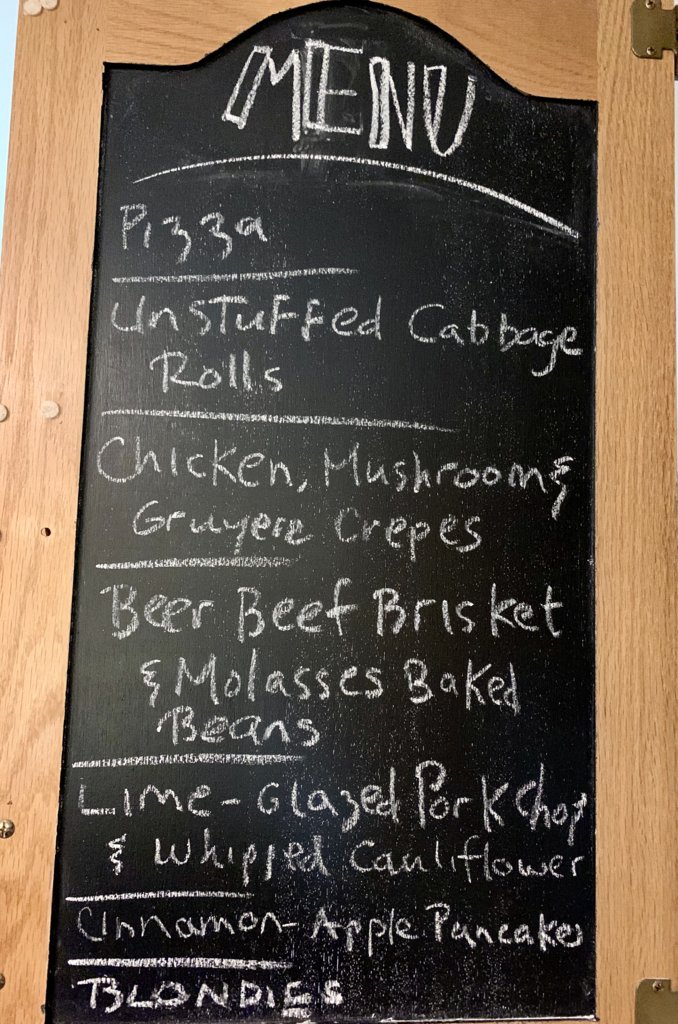 MENU
Pizza
Unstuffed Cabbage
Rolls
Chicken, Mushroom &
Gruyere Crepes
Beer Beef Brisket
& Molasses Baked
Beans
Lime-Glazed Pork Chop
& Whipped Cauliflower
Cinnamon-Apple Pancakes
BLONDIES